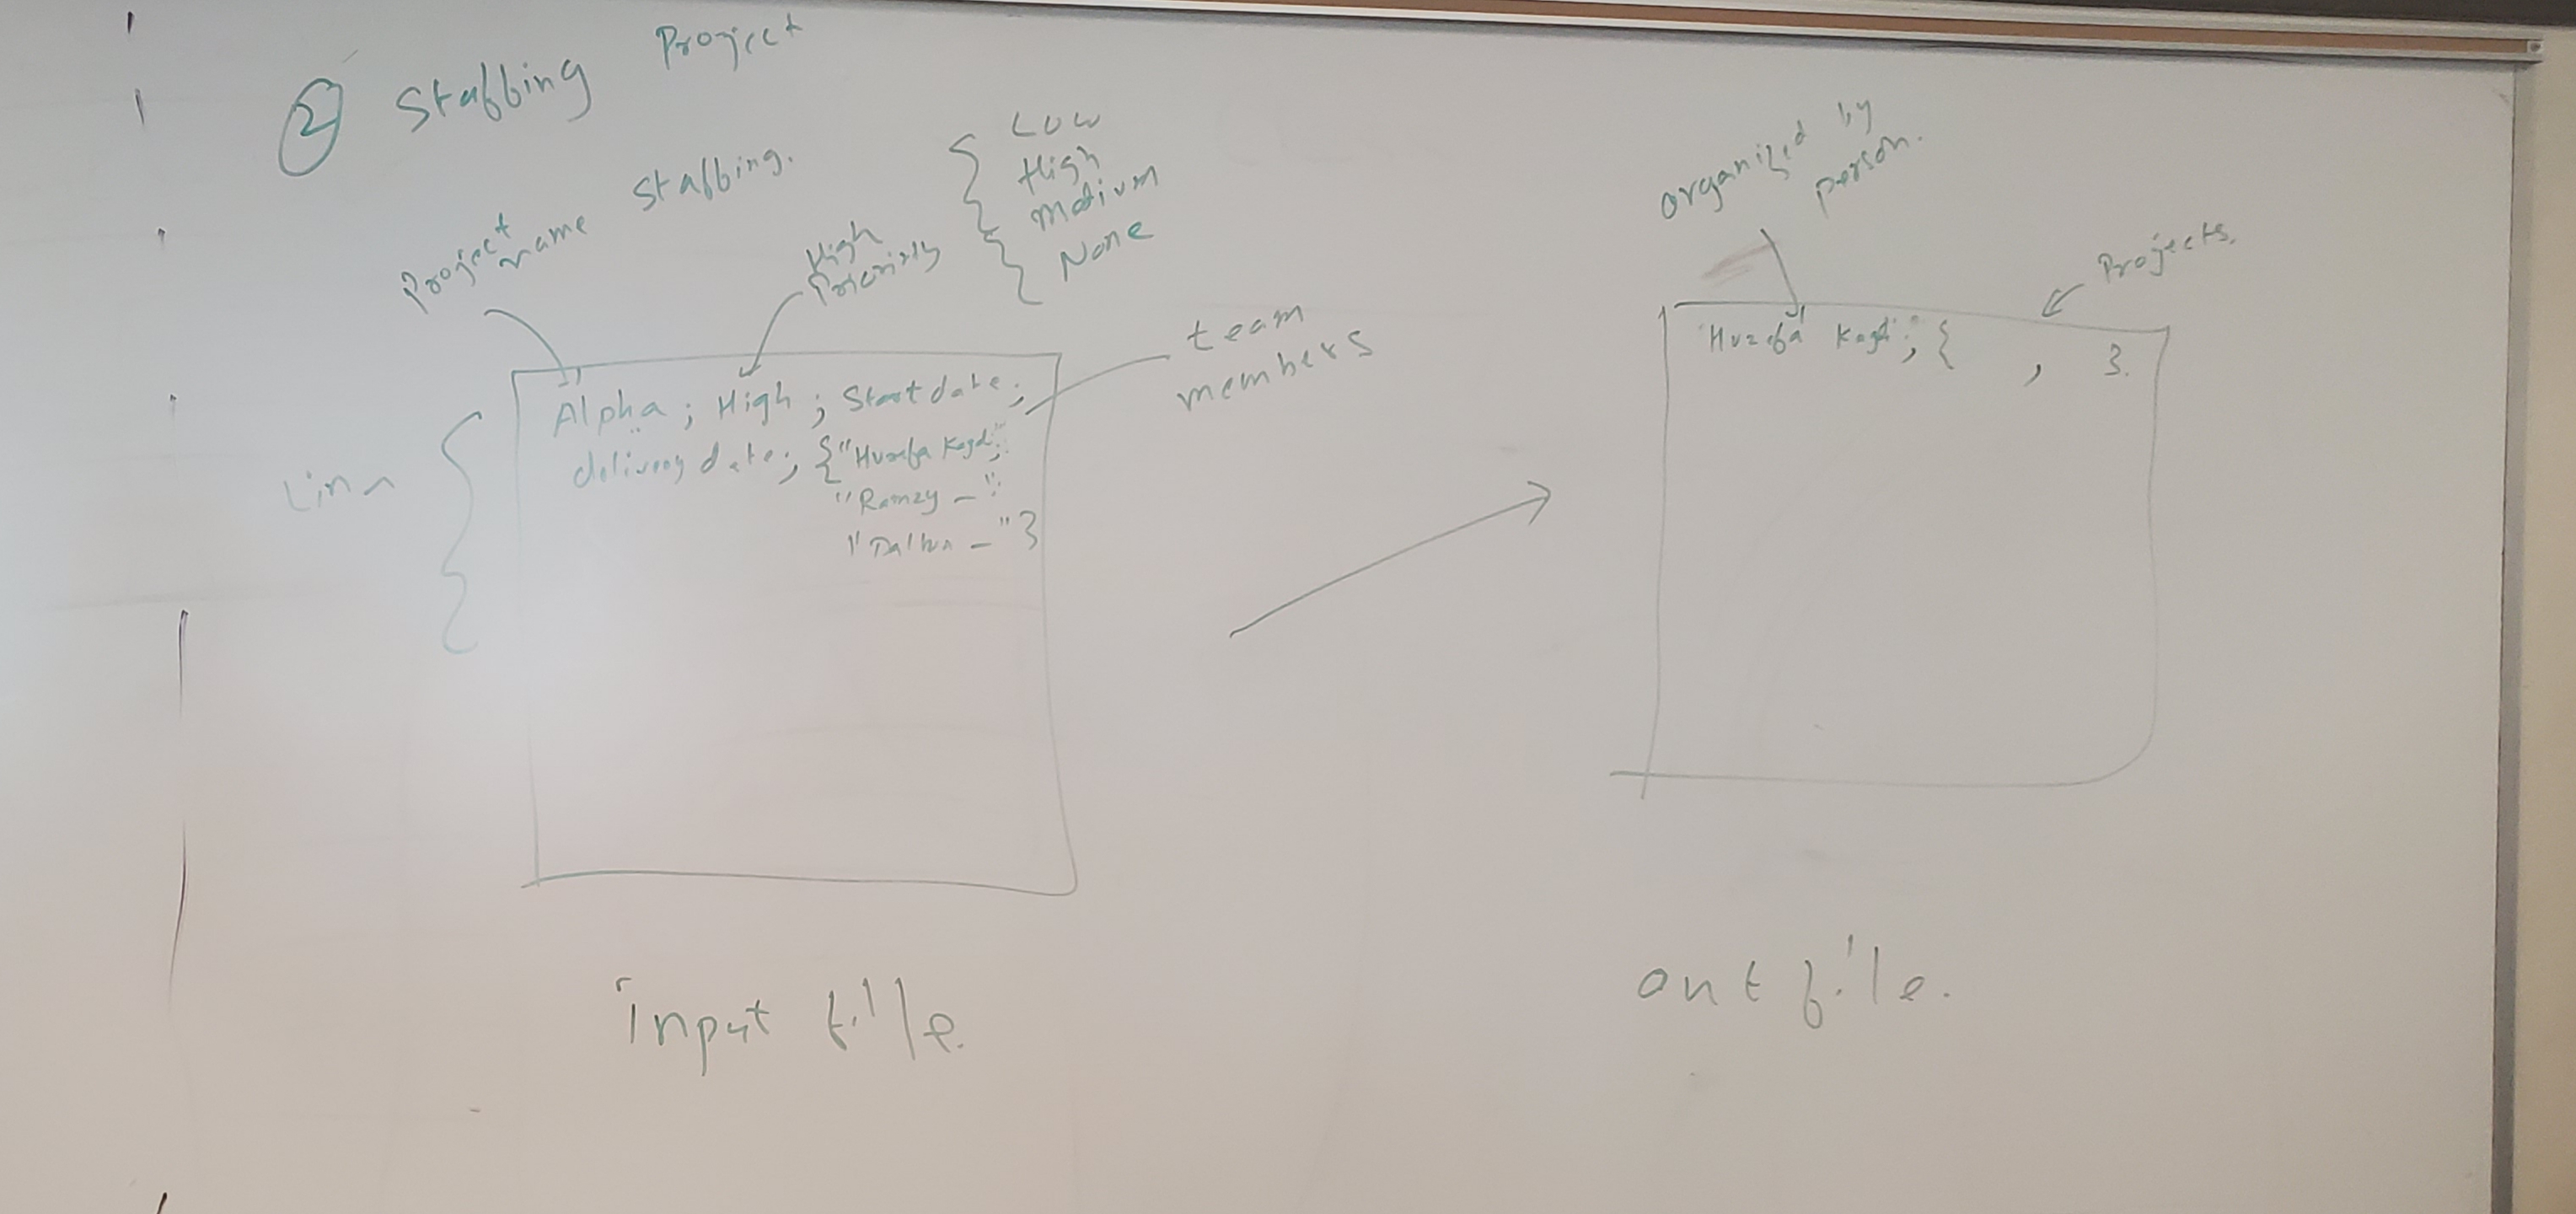 ② Staffing Project
Project name staffing.
High Priority
Low
High
Medium
None
team members
Line
Alpha ; High ; Start date ;
delivery date ; {"Huzefa Kagdi";
"Ramzy —";
"Dalton —"}
input file.
organized by person.
Projects.
"Huzefa Kagdi" ; { , }.
out file.